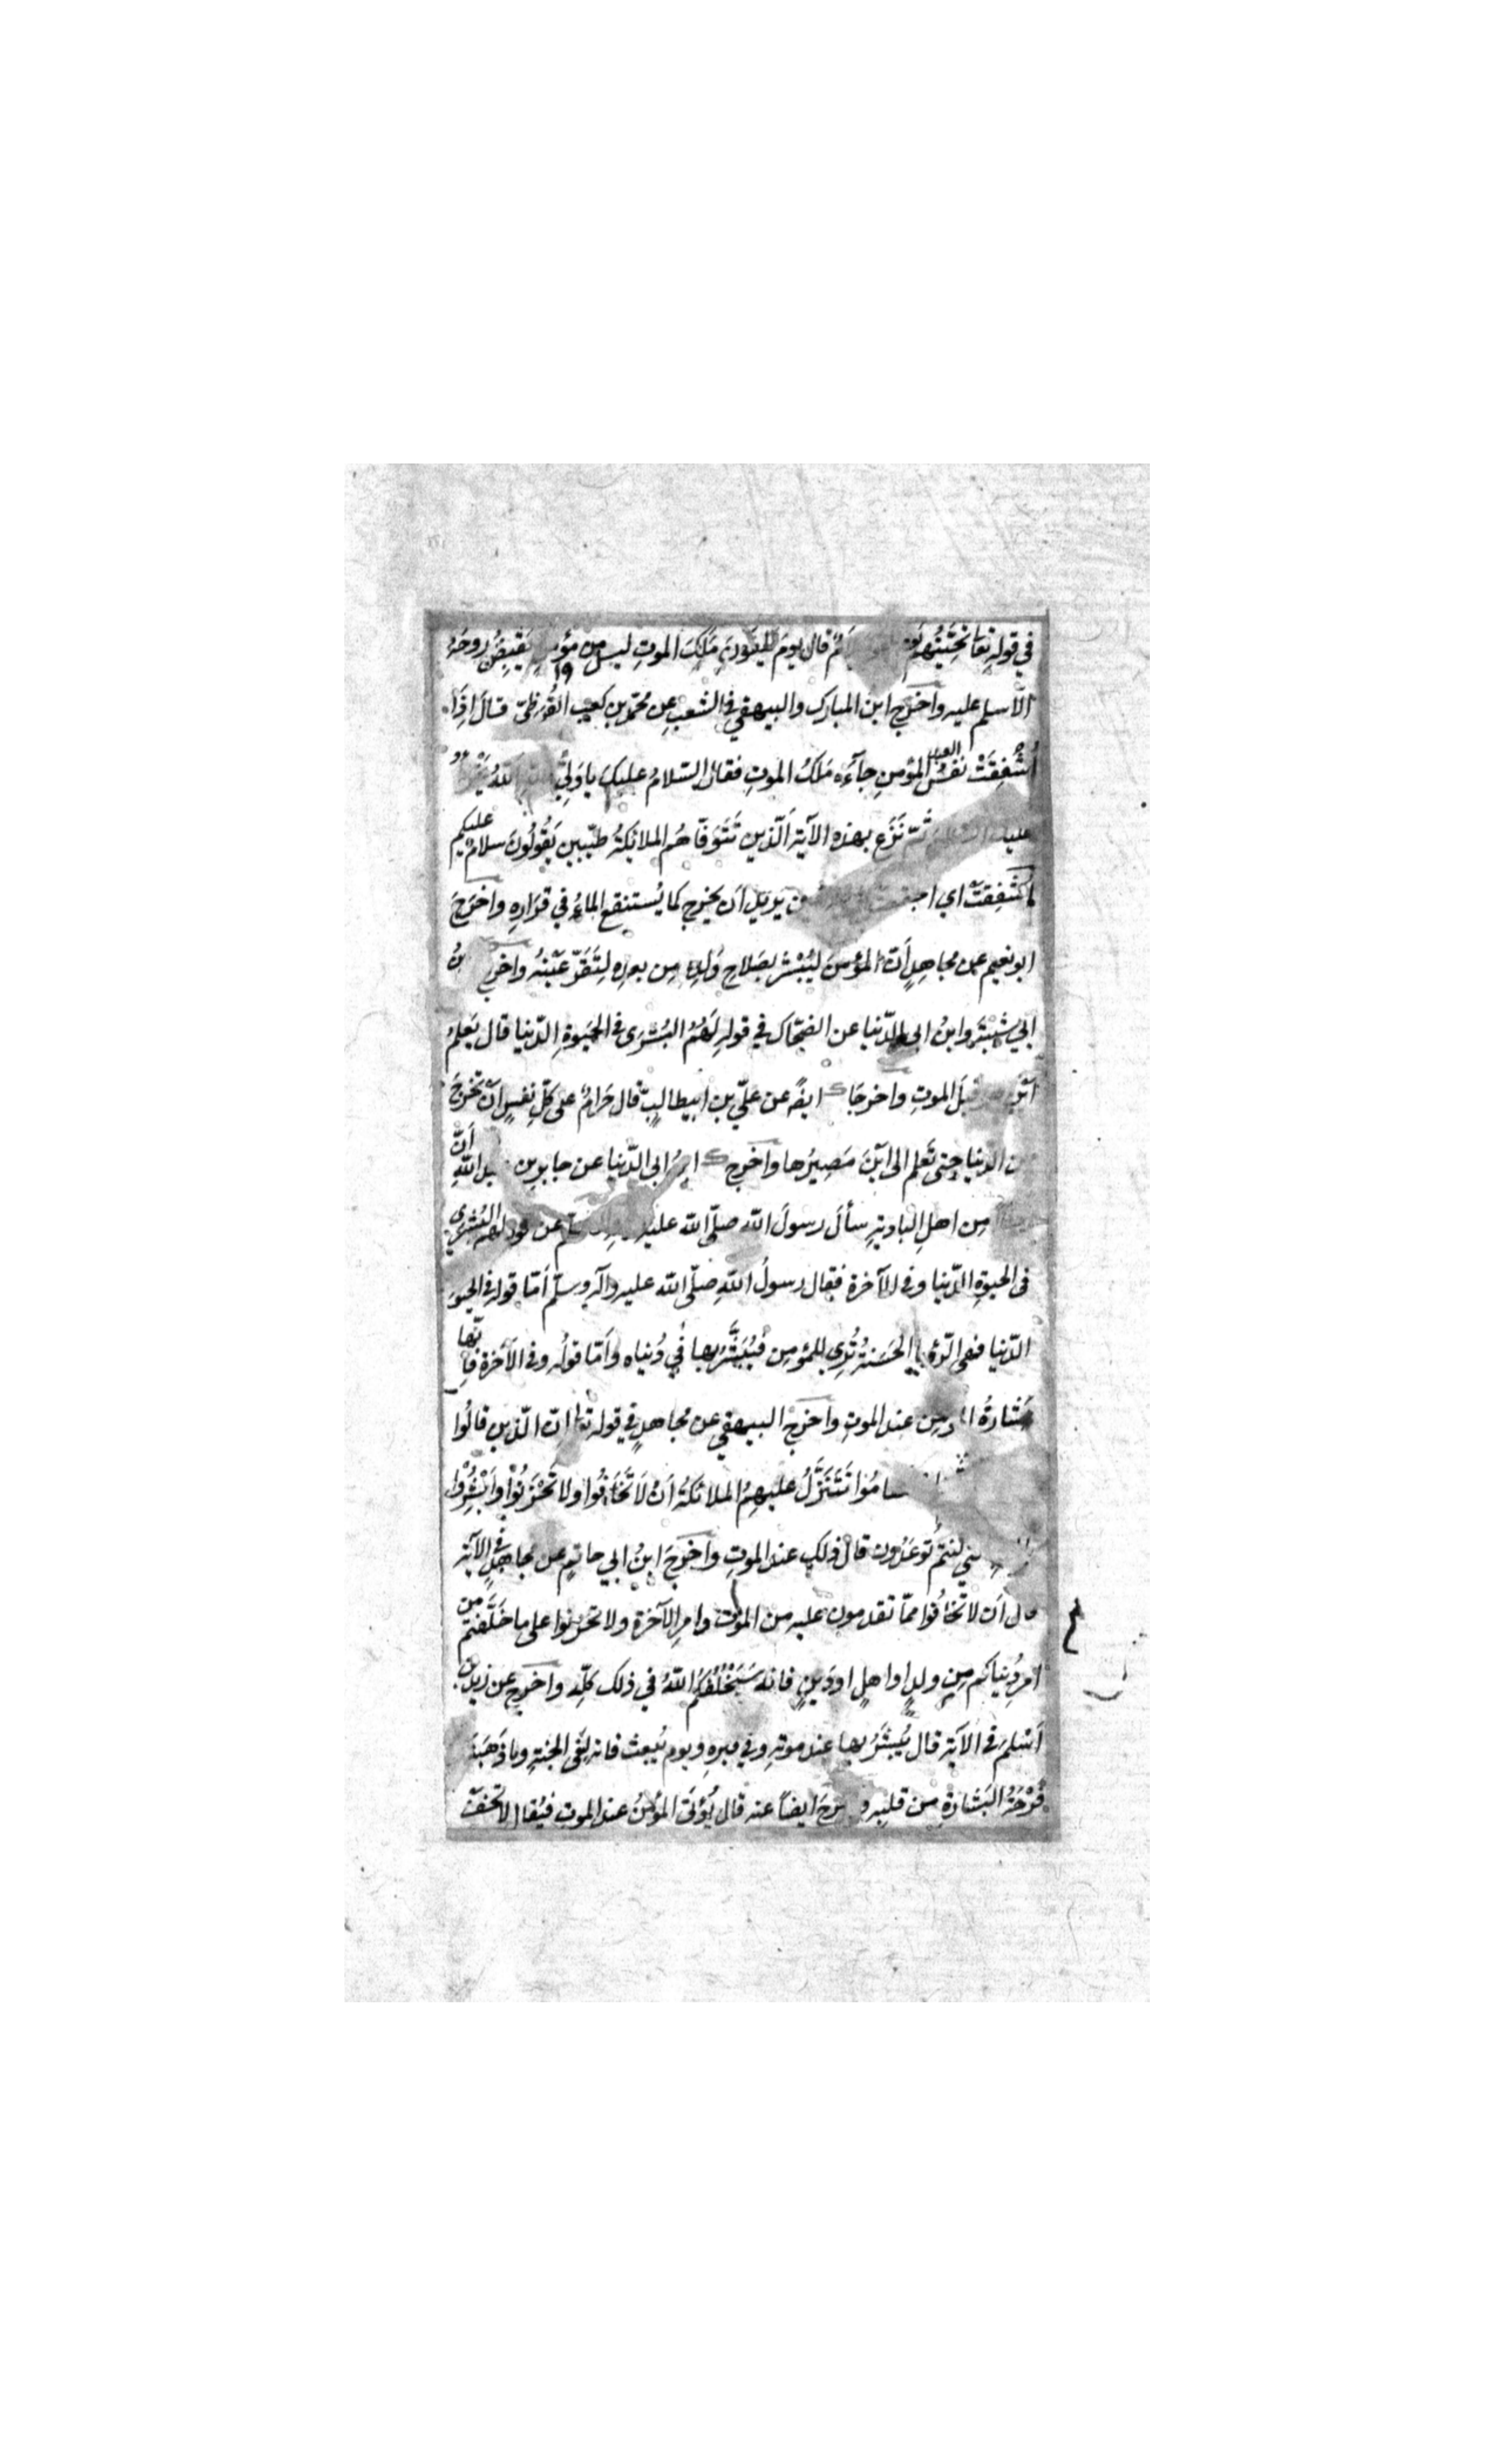 في قوله تعا تحيتهم يوم قال يوم يلقون مَلَكَ الموتِ ليس من يَقبِضُ روحَهُ
الّا سلم عليه واخرج ابن المبارك والبيهقي في الشعب عن محمّد بن كعب القُرظيّ قال اِذَا
نفسُ المؤمنِ جآءَه مَلَكُ الموتِ فقال السّلامُ عليكَ ياوَلِيَّ اللهُ
عليك ثمّ نَزَع بهذه الآية اَلّذين تَتَوَفّاهُم الملائكةُ طيّبين يَقُولُونَ سلامٌ عليكم
اي يريد اَن يخرج كما يُستنقع الماءُ في قرَارِهِ واخرَجَ
ابونعيم عن مجاهدٍ اَنّ المؤمنَ ليُبَشَّرُ بصَلاحِ وَلَدِه مِن بعدِه لِتَقَرّ عَيْنُهُ واخرج
ابي شَيْبَة وابنُ ابي الدّنيا عن الضحّاك في قولِه لَهُمُ البُشْرَى في الحَيوةِ الدّنيا قال يَعلمُ
قبلَ الموتِ واخرجَا عن عليّ بن ابيطالبٍ قال حَرامٌ على كلّ نفسٍ اَنْ تخرُجَ
من الدّنيا حتى تَعلم الى اَيْنَ مَصِيرُها واَخرج ابن ابي الدّنيا عن جابر بن عبد اللهِ اَنّ
مِن اهلِ الباديةِ سألَ رسولَ الله صلّى الله عليه عن قوله لهم البُشرى
في الحيوةِ الدّنيا وفي الآخرة فقال رسولُ اللهِ صلّى الله عليه وآله وسلّم اَمّا قوله في الحيوة
الدّنيا فهي الرّؤيا الحَسَنةُ تُرى للمؤمِن فيُبَشَّرُ بها في دُنياه واَمّا قولُه وفي الآخرة فاِنّها
بَشارةُ المؤمن عند الموتِ واخرج البيهقي عن مجاهدٍ في قوله تعا انّ الّذين قالُوا
تَتَنَزَّلُ عليهِمُ الملائكةُ اَنْ لَا تَخَافُوا ولا تَحْزَنُوْا وَاَبْشِرُوْا
كنتم تُوعَدُون قال ذلك عند الموتِ واخرجَ ابنُ ابي حاتمٍ عن مجاهدٍ في الآية
قال اَن لا تخافُوا ممّا تقدمون عليه من الموت وامرِ الآخرة ولا تحزنوا على ما خَلَّفتم من
امرِ دُنياكم مِن ولدٍ او اهلٍ اودَينٍ فانه سَيَخْلُفُكُم اللهُ في ذلك كلّه واخرج عن زيد بن
اَسْلمَ في الآية قال يُبَشَّرُ بها عند موتِه وفي قبرهِ ويوم يُبعث فانه لفي الجنةِ وما ذَهَبَتْ
فَرْحَةُ البَشارةِ من قلبِه و ايضاً عنه قال يُؤتى المؤمنُ عند الموتِ فيُقال لا تخفْ